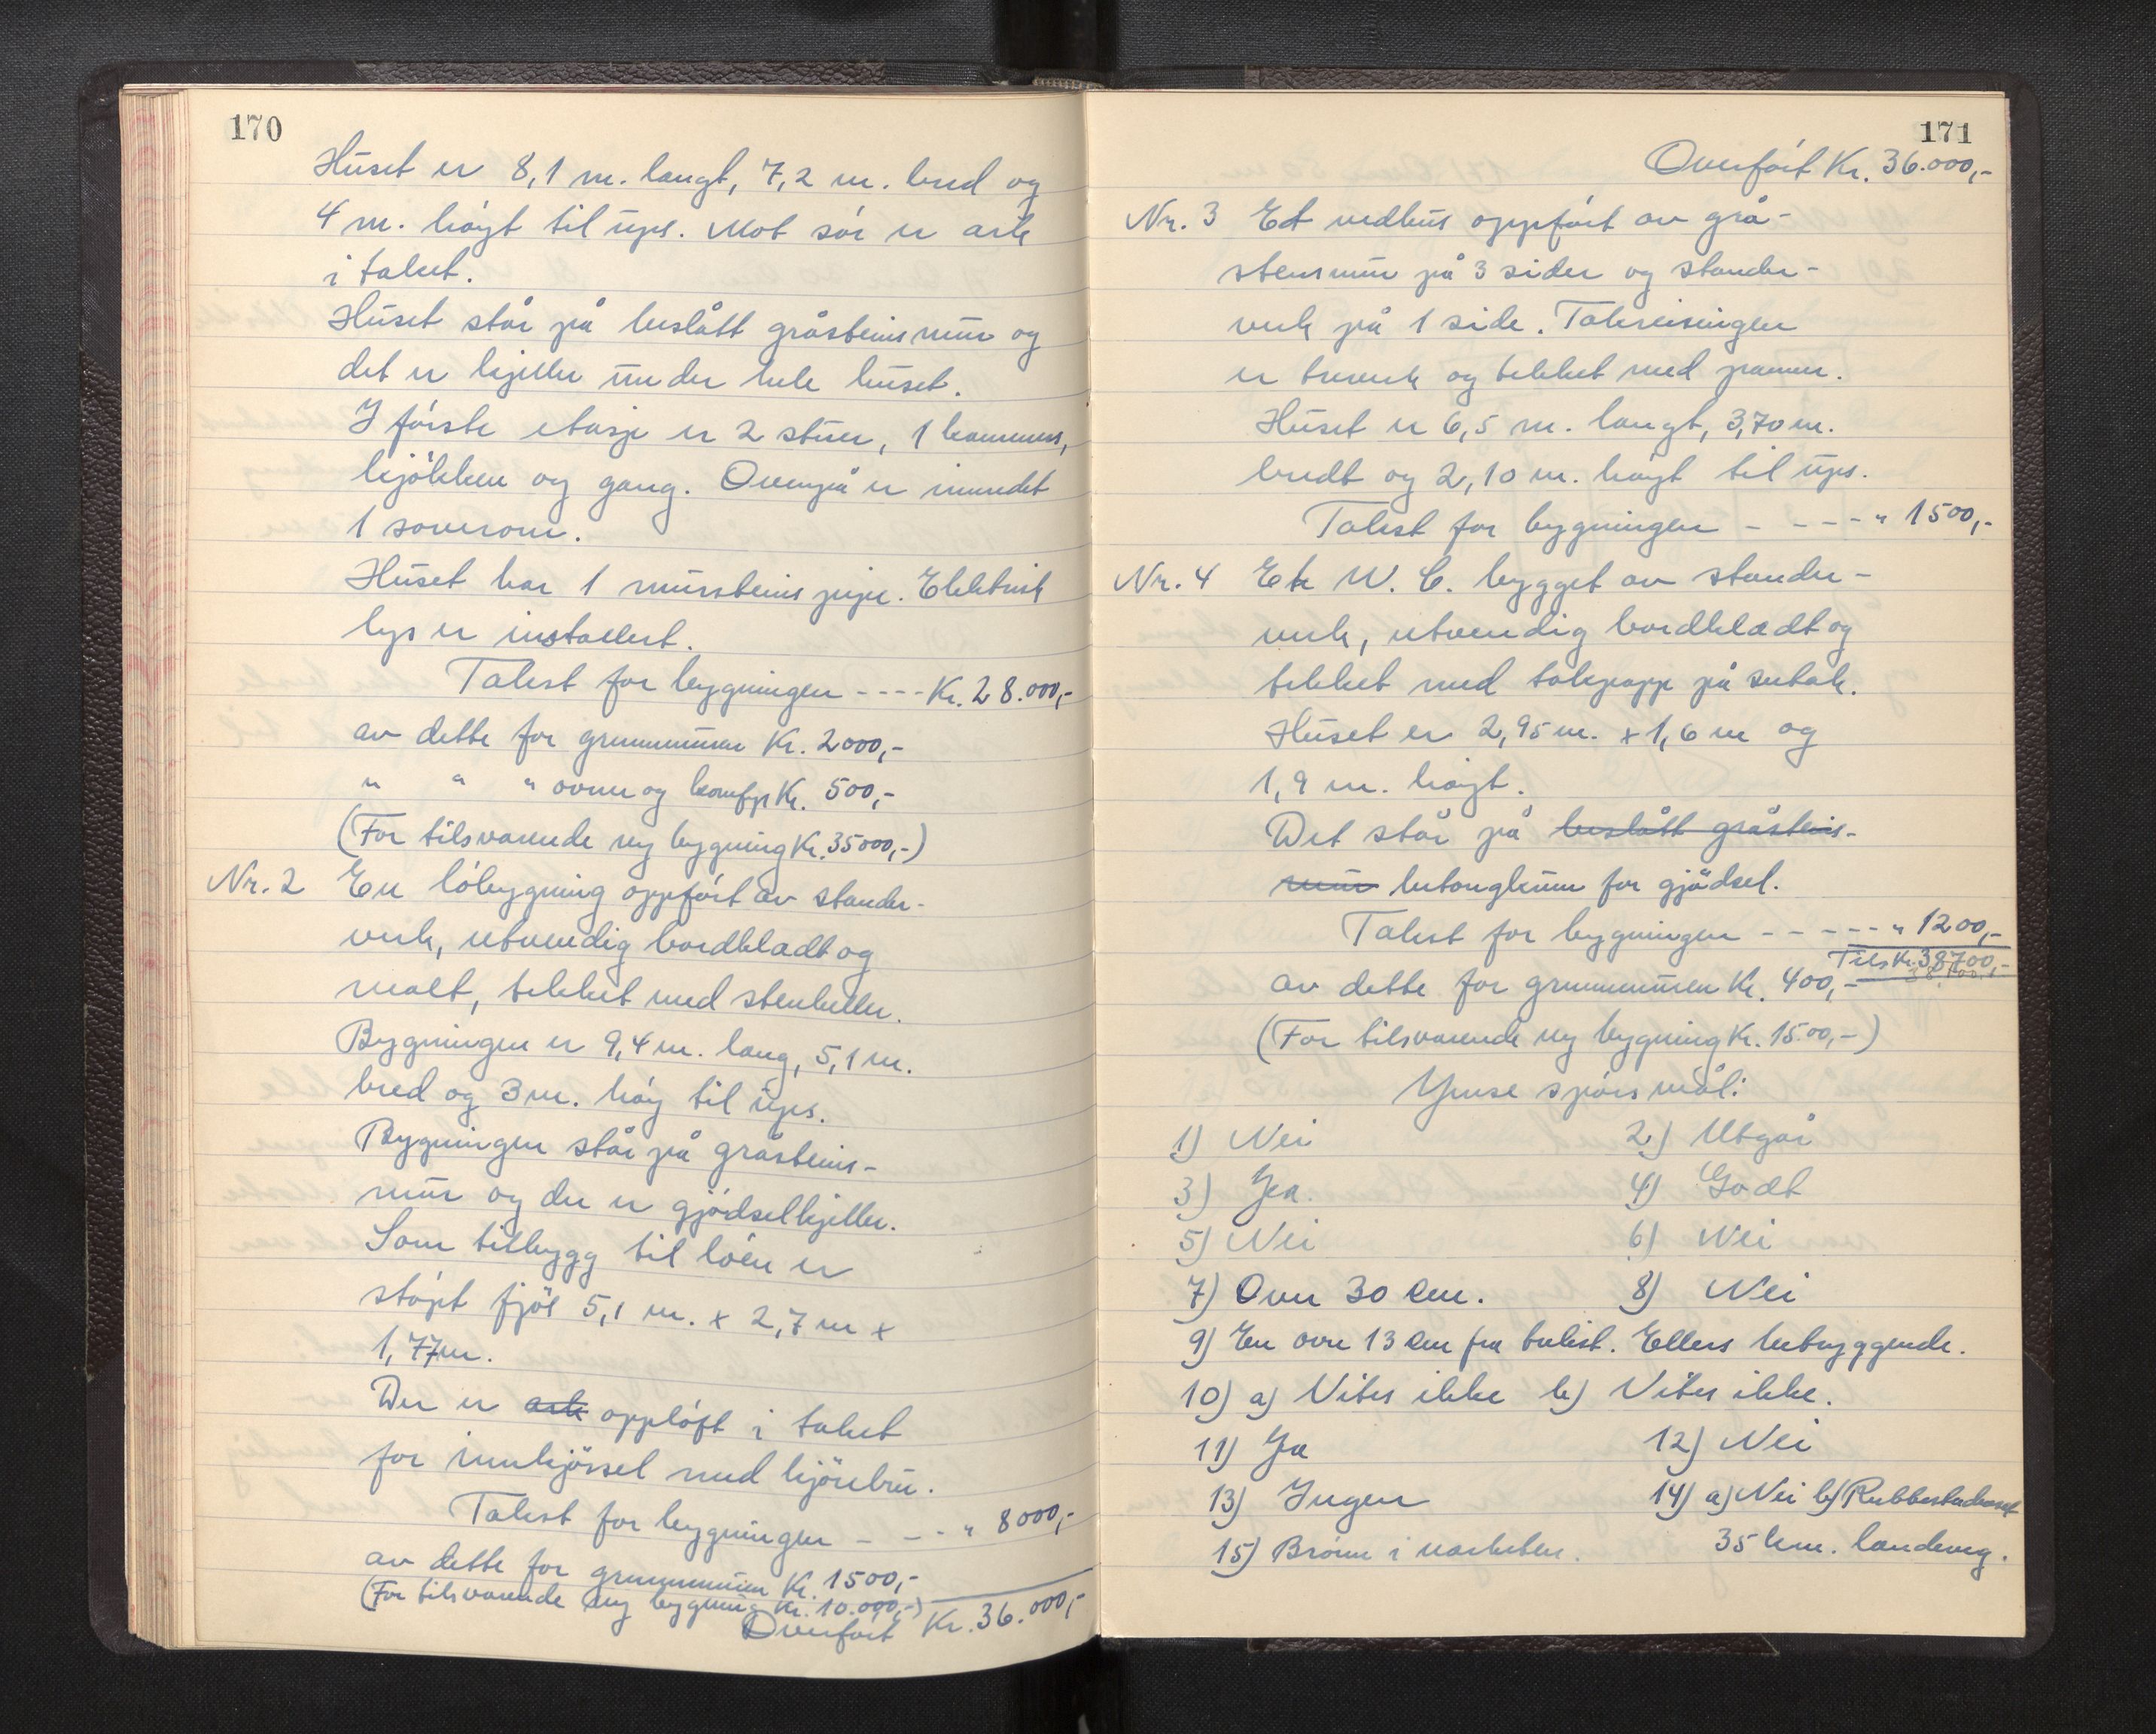 170
Huset er 8,1 m. langt, 7,2 m. bred og
4 m. højt til ups. Mot sør er ark
i taket.
Huset står på beslått gråsteinsmur og
det er kjeller under hele huset.
I første etasje er 2 stuer, 1 kammers,
kjøkken og gang. Ovenpå er innredet
1 soverom.
Huset har 1 mursteins pipe. Elektrisk
lys er installert.
Takst for bygningen - - - - Kr. 28.000,-
av dette for grunnmuren Kr. 2000,-
" " " ovner og komfyr Kr. 500,-
(For tilsvarende ny bygning Kr. 35000,-)
Nr. 2 En løbygning oppført av stander-
verk, utvendig bordkladt og
malt, tekket med stenheller.
Bygningen er 9,4 m. lang, 5,1 m.
bred og 3 m. høy til ups.
Bygningen står på gråsteins-
mur og der er gjødselkjeller.
Som tilbygg til løen er
støpt fjøs 5,1 m. x 2,7 m x
1,77 m.
Der er ark oppløft i taket
for innkjørsel med kjørebru.
Takst for bygningen - - - " 8000,-
av dette for grunnmuren Kr. 1500,-
(For tilsvarende ny bygning Kr. 10.000,-)
Overført Kr. 36.000,-
171
Overført Kr. 36.000,-
Nr. 3 Et vedhus oppført av grå-
stensmur på 3 sider og stander-
verk på 1 side. Takreisingen
er treverk og tekket med panner.
Huset er 6,5 m. langt, 3,70 m.
bredt og 2,10 m. høyt til ups.
Takst for bygningen - - - - " 1500,-
Nr. 4 Et W. C. bygget av stander-
verk, utvendig bordkladt og
tekket med takpapp på sutak.
Huset er 2,95 m. x 1,6 m og
1,9 m. høyt.
Det står på beslått gråsteins-
mur betongkum for gjødsel.
Takst for bygningen - - - - - " 1200,-
Tils Kr. 38700,-
av dette for grunnmuren Kr. 400,-
(For tilsvarende ny bygning Kr. 1500,-)
Ymse spørsmål:
1) Nei 2) Utgår
3) Ja. 4) Godt
5) Nei 6) Nei
7) Over 30 cm. 8) Nei
9) En ovn 13 cm fra trelist. Ellers betryggende.
10) a) Vites ikke b) Vites ikke.
11) Ja 12) Nei
13) Ingen 14) a) Nei b) Rubbestadneset
35 km. landeveg.
15) Brønn i nærheten.